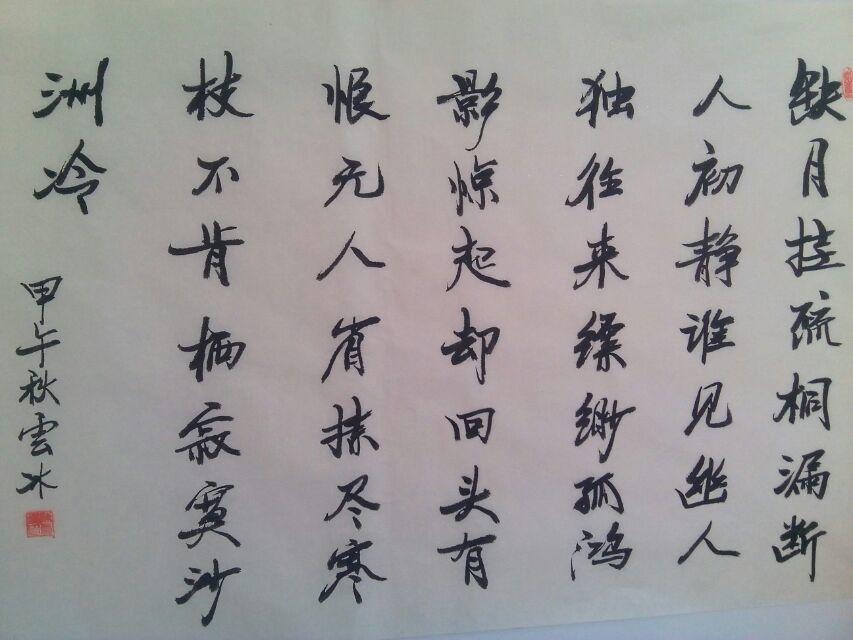 缺月挂疏桐漏断
人初静谁见幽人
独往来缥缈孤鸿
影惊起却回头有
恨无人省拣尽寒
枝不肯栖寂寞沙
洲冷
甲午秋雲冰